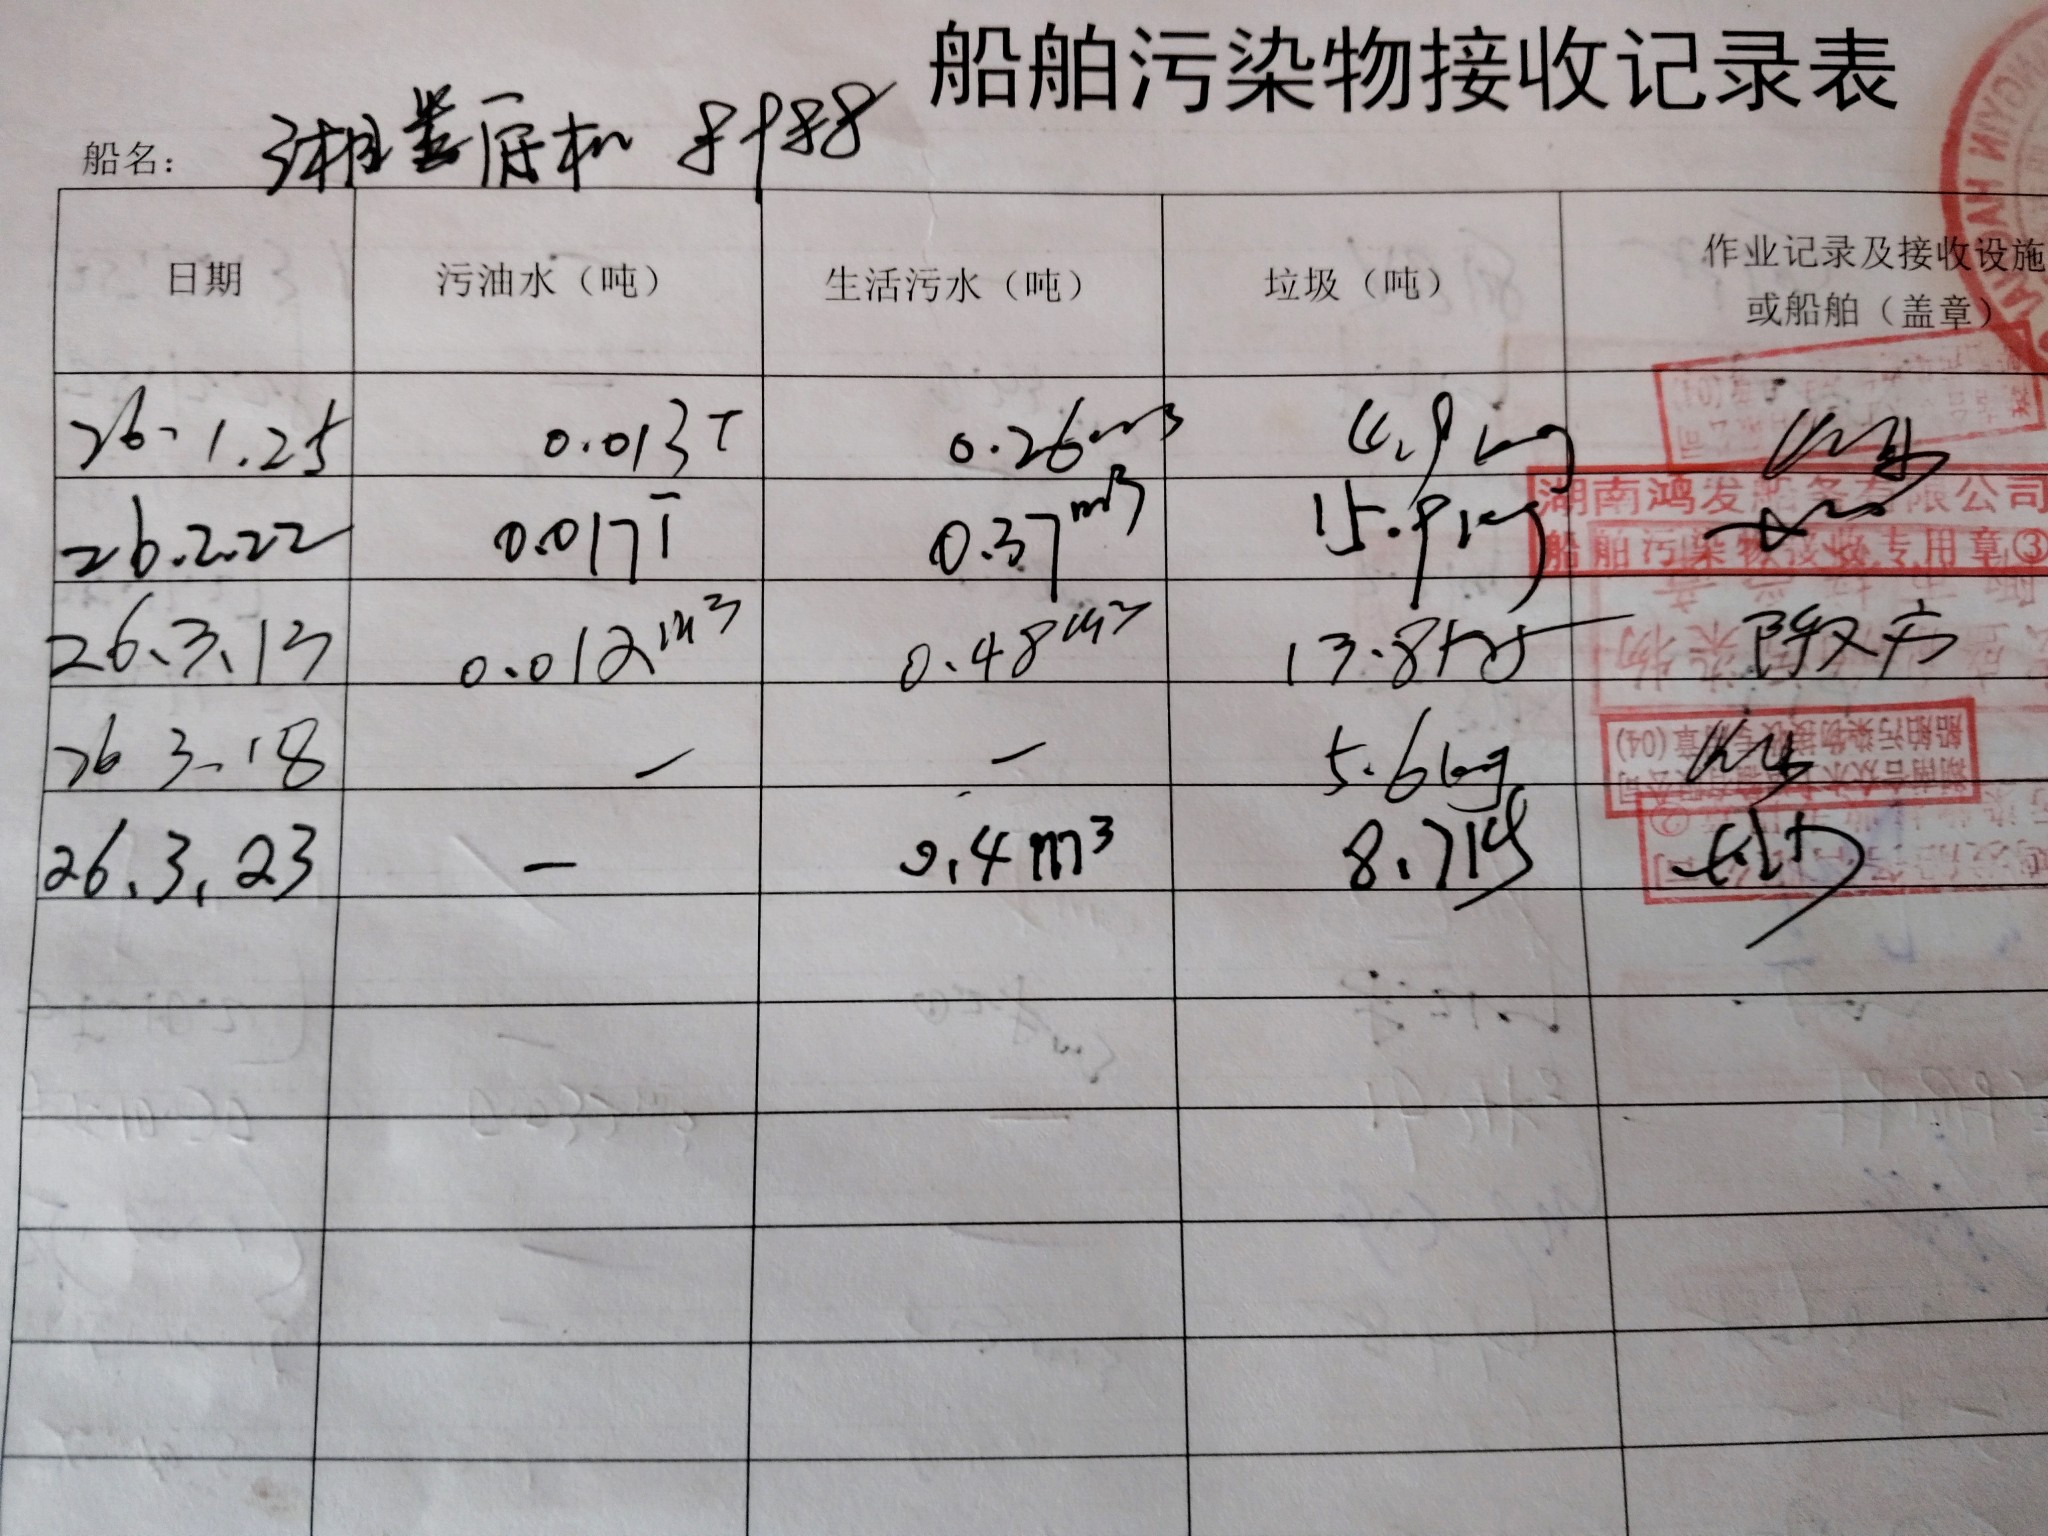 船舶污染物接收记录表
船名:
日期 污油水（吨） 生活污水（吨） 垃圾（吨） 作业记录及接收设施
或船舶（盖章）
26.1.25 0.013T 0.26m3 kg
湖南鸿发船务有限公司
26.2.22 0.017T 0.37m3 15.9kg
船舶污染物接收专用章③
26.3.13 0.012m3 0.48m3 13.8kg
26 3.18 — — 5.6kg
船舶污染物接收专用章(04)
26.3.23 — 0.4m3 8.7kg